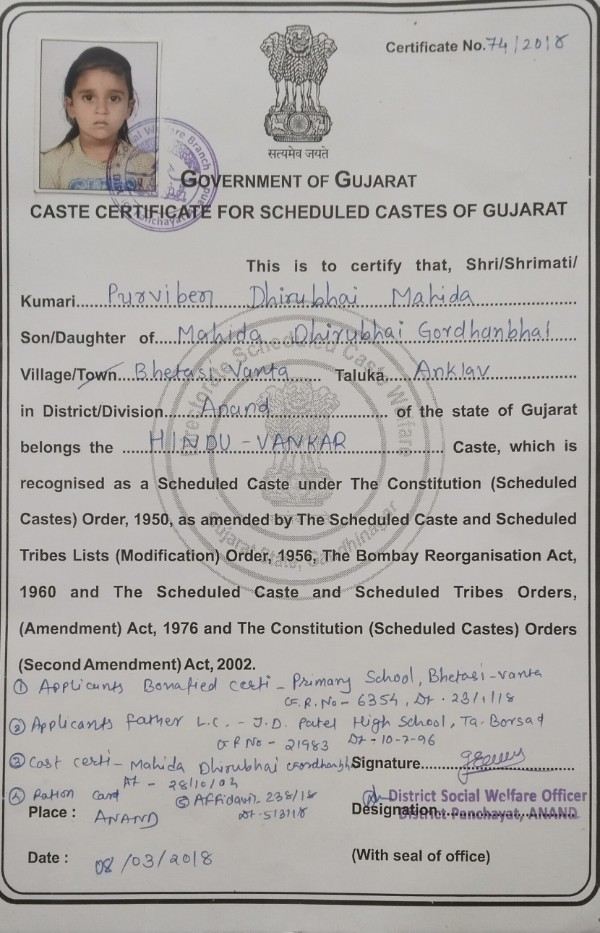 Certificate No. 74/2018
सत्यमेव जयते
GOVERNMENT OF GUJARAT
CASTE CERTIFICATE FOR SCHEDULED CASTES OF GUJARAT
This is to certify that, Shri/Shrimati/
Kumari....Purviben Dhirubhai Mahida
Son/Daughter of....Mahida Dhirubhai Gordhanbhai
Village/Town...Bhetasi Vanta Taluka....Anklav
in District/Division......Anand...... of the state of Gujarat
belongs the ....HINDU-VANKAR.... Caste, which is
recognised as a Scheduled Caste under The Constitution (Scheduled
Castes) Order, 1950, as amended by The Scheduled Caste and Scheduled
Tribes Lists (Modification) Order, 1956, The Bombay Reorganisation Act,
1960 and The Scheduled Caste and Scheduled Tribes Orders,
(Amendment) Act, 1976 and The Constitution (Scheduled Castes) Orders
(Second Amendment) Act, 2002.
① Applicants Bonafied certi - Primary School, Bhetasi-vanta
G.R.No - 6354, Dt. 23/1/18
② Applicants father L.C. - J.D. Patel High School, Ta. Borsad
G R No - 21983 Dt - 10-7-96
③ Cast certi - Mahida Dhirubhai Gordhanbhai
Dt - 28/10/02
Signature
④ Ration Card ⑤ Affidavit - 238/18
Dt - 5/3/18
District Social Welfare Officer
District Panchayat, ANAND
Place : ANAND
Designation
Date : 08/03/2018
(With seal of office)